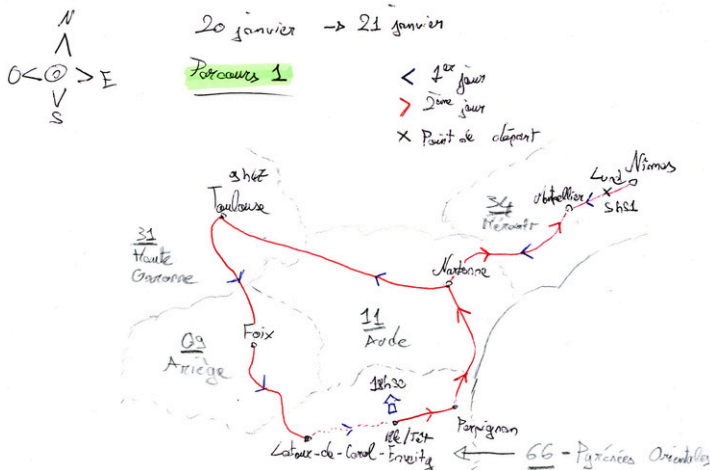 N
O E
S
20 janvier → 21 janvier
Parcours 1
< 1er jour
> 2ème jour
× Point de départ
9h47
Toulouse
31
Haute
Garonne
09
Ariège
Foix
11
Aude
Narbonne
34
Hérault
Montpellier
Lunel
5h51
Nîmes
18h30
Ille/Têt
Perpignan
Latour-de-Carol-Enveitg
66 - Pyrénées Orientales